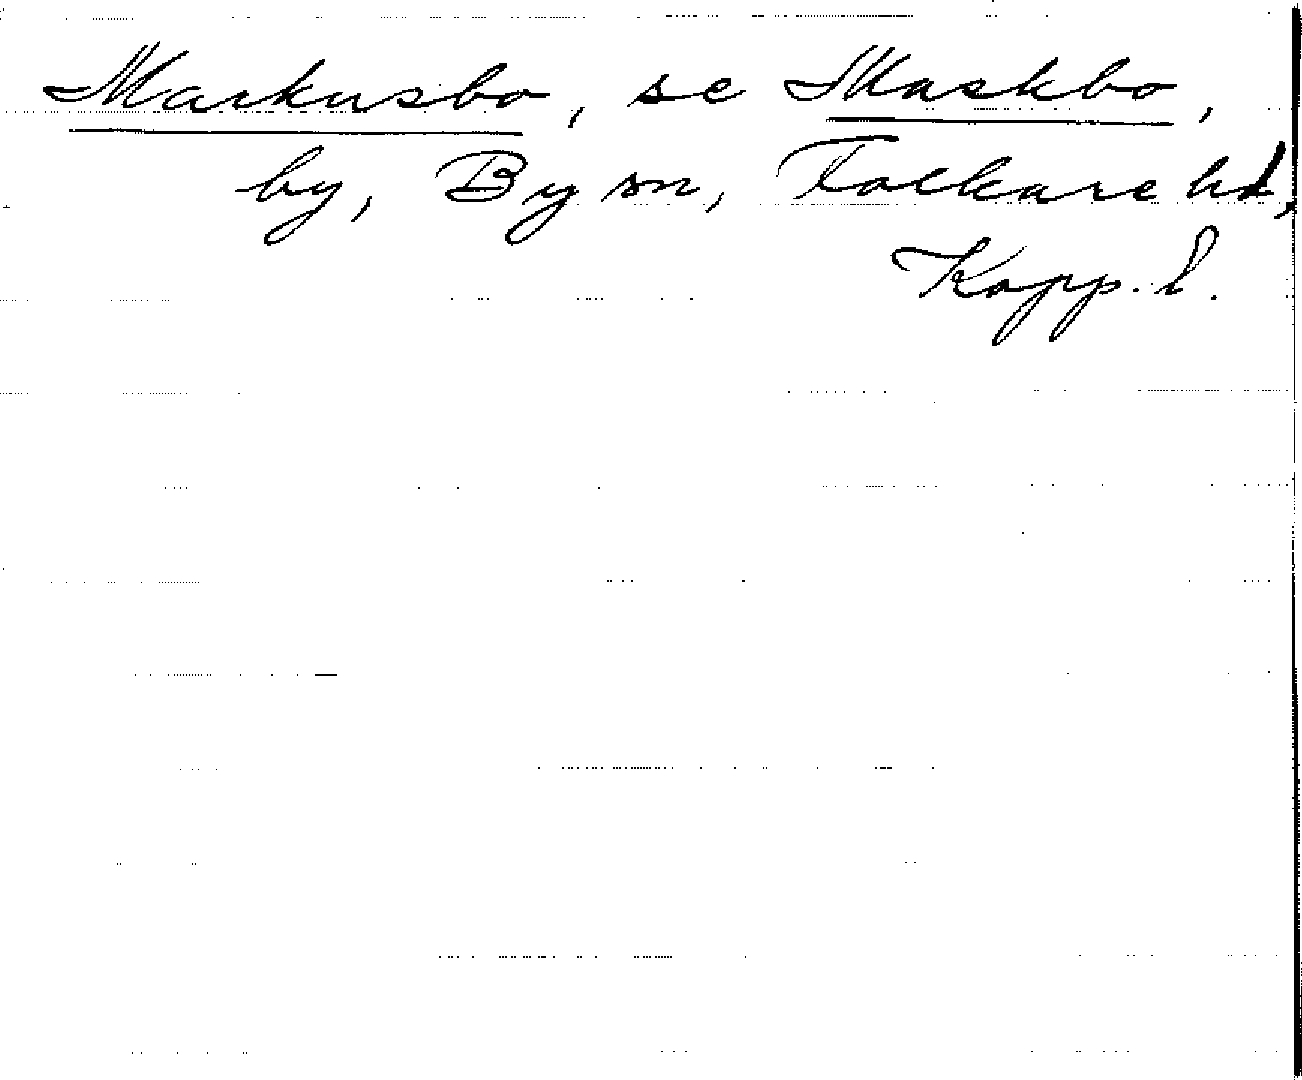 Markusbo, se Maskbo,
by, By sn, Folkare hd,
Kopp. l.